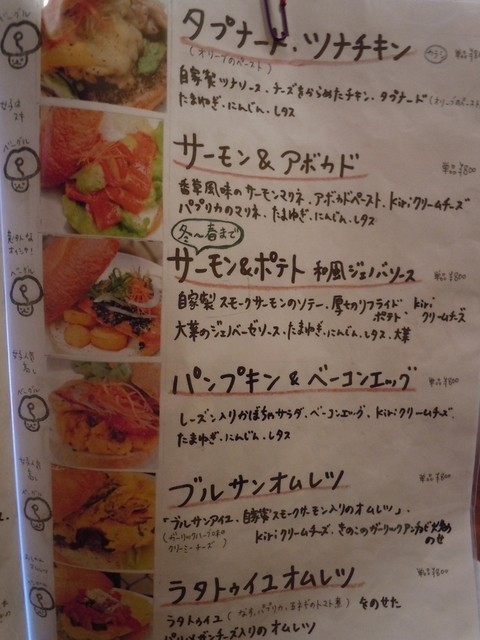 タプナード・ツナチキン
(オリーブのペースト)
自家製ツナソース・チーズをからめたチキン・タプナード(オリーブのペースト)
たまねぎ・にんじん・レタス
サーモン&アボカド 単品¥800
香草風味のサーモンマリネ・アボカドペースト・Kiriクリームチーズ
パプリカのマリネ・たまねぎ・にんじん・レタス
冬〜春まで
サーモン&ポテト 和風ジェノバソース 単品¥800
自家製スモークサーモンのソテー・厚切りフライドポテト Kiriクリームチーズ
大葉のジェノベーゼソース・たまねぎ・にんじん・レタス・大葉
パンプキン&ベーコンエッグ 単品¥800
レーズン入りかぼちゃサラダ・ベーコンエッグ・Kiriクリームチーズ・
たまねぎ・にんじん・レタス
ブルサンオムレツ 単品¥800
「ブルサンアイユ・自家製スモークサーモン入りのオムレツ」・
(ガーリックハーブ味のクリーミーチーズ) Kiriクリームチーズ・きのこのガーリックアンチョビ炒めのせ
ラタトゥイユオムレツ 単品¥800
ラタトゥイユ(なす・パプリカ・玉ネギのトマト煮)をのせた
パルメザンチーズ入りのオムレツ
ベーグル
ベーグル
ベーグル
ベーグル
ベーグル